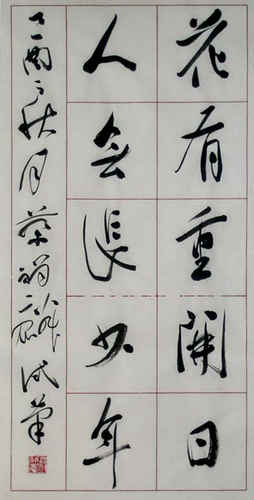 花有重開日
人無長少年
丁酉之秋月蔡試筆